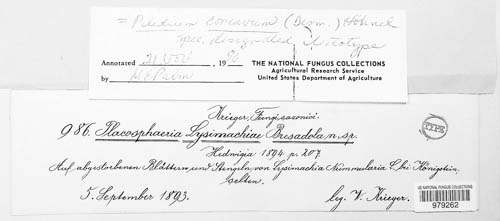 = Pilidium concavum (Desm.) Höhnel
spec. designated lectotype
Annotated 21 Nov 1980
by M E Palm
THE NATIONAL FUNGUS COLLECTIONS
Agricultural Research Service
United States Department of Agriculture
Krieger, Fungi saxonici.
986. Placosphaeria Lysimachiae Bresadola n. sp.
Hedwigia 1894. p. 207.
TYPE
Auf abgestorbenen Blättern und Stengeln von Lysimachia Nummularia L. bei Königstein,
selten.
5. September 1893.
lg. W. Krieger.
US NATIONAL FUNGUS COLLECTIONS
979262